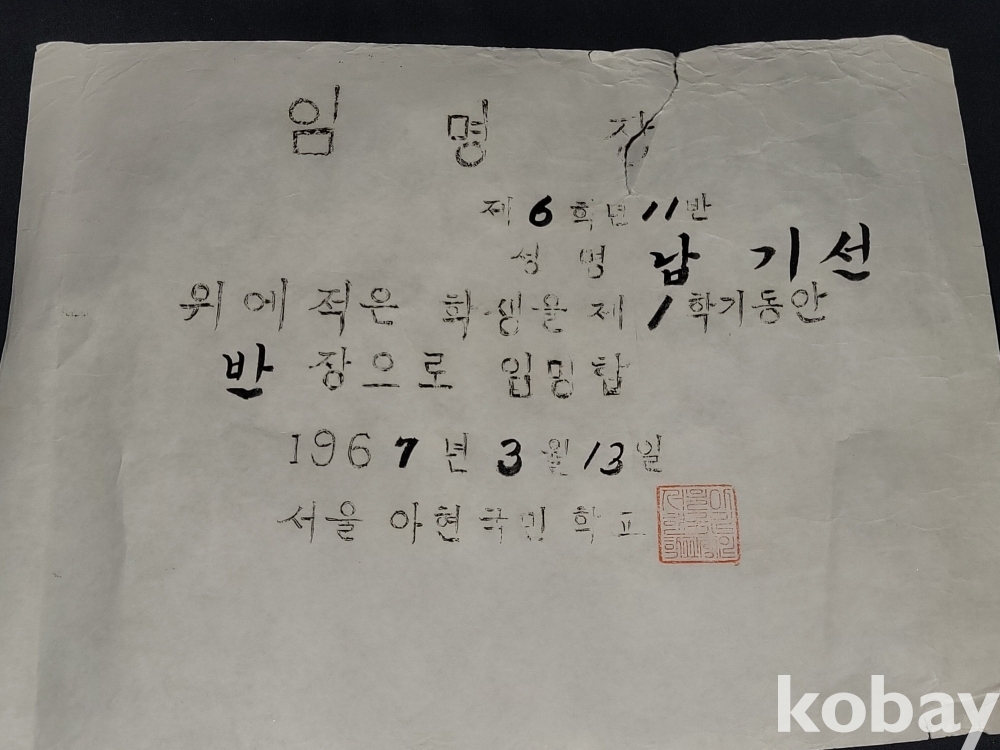 임 명 장
제 6 학년 11 반
성 명 남 기 선
위에 적은 학생을 제 1 학기동안
반 장으로 임명함
1967년 3월 13일
서울 아현국민학교
kobay